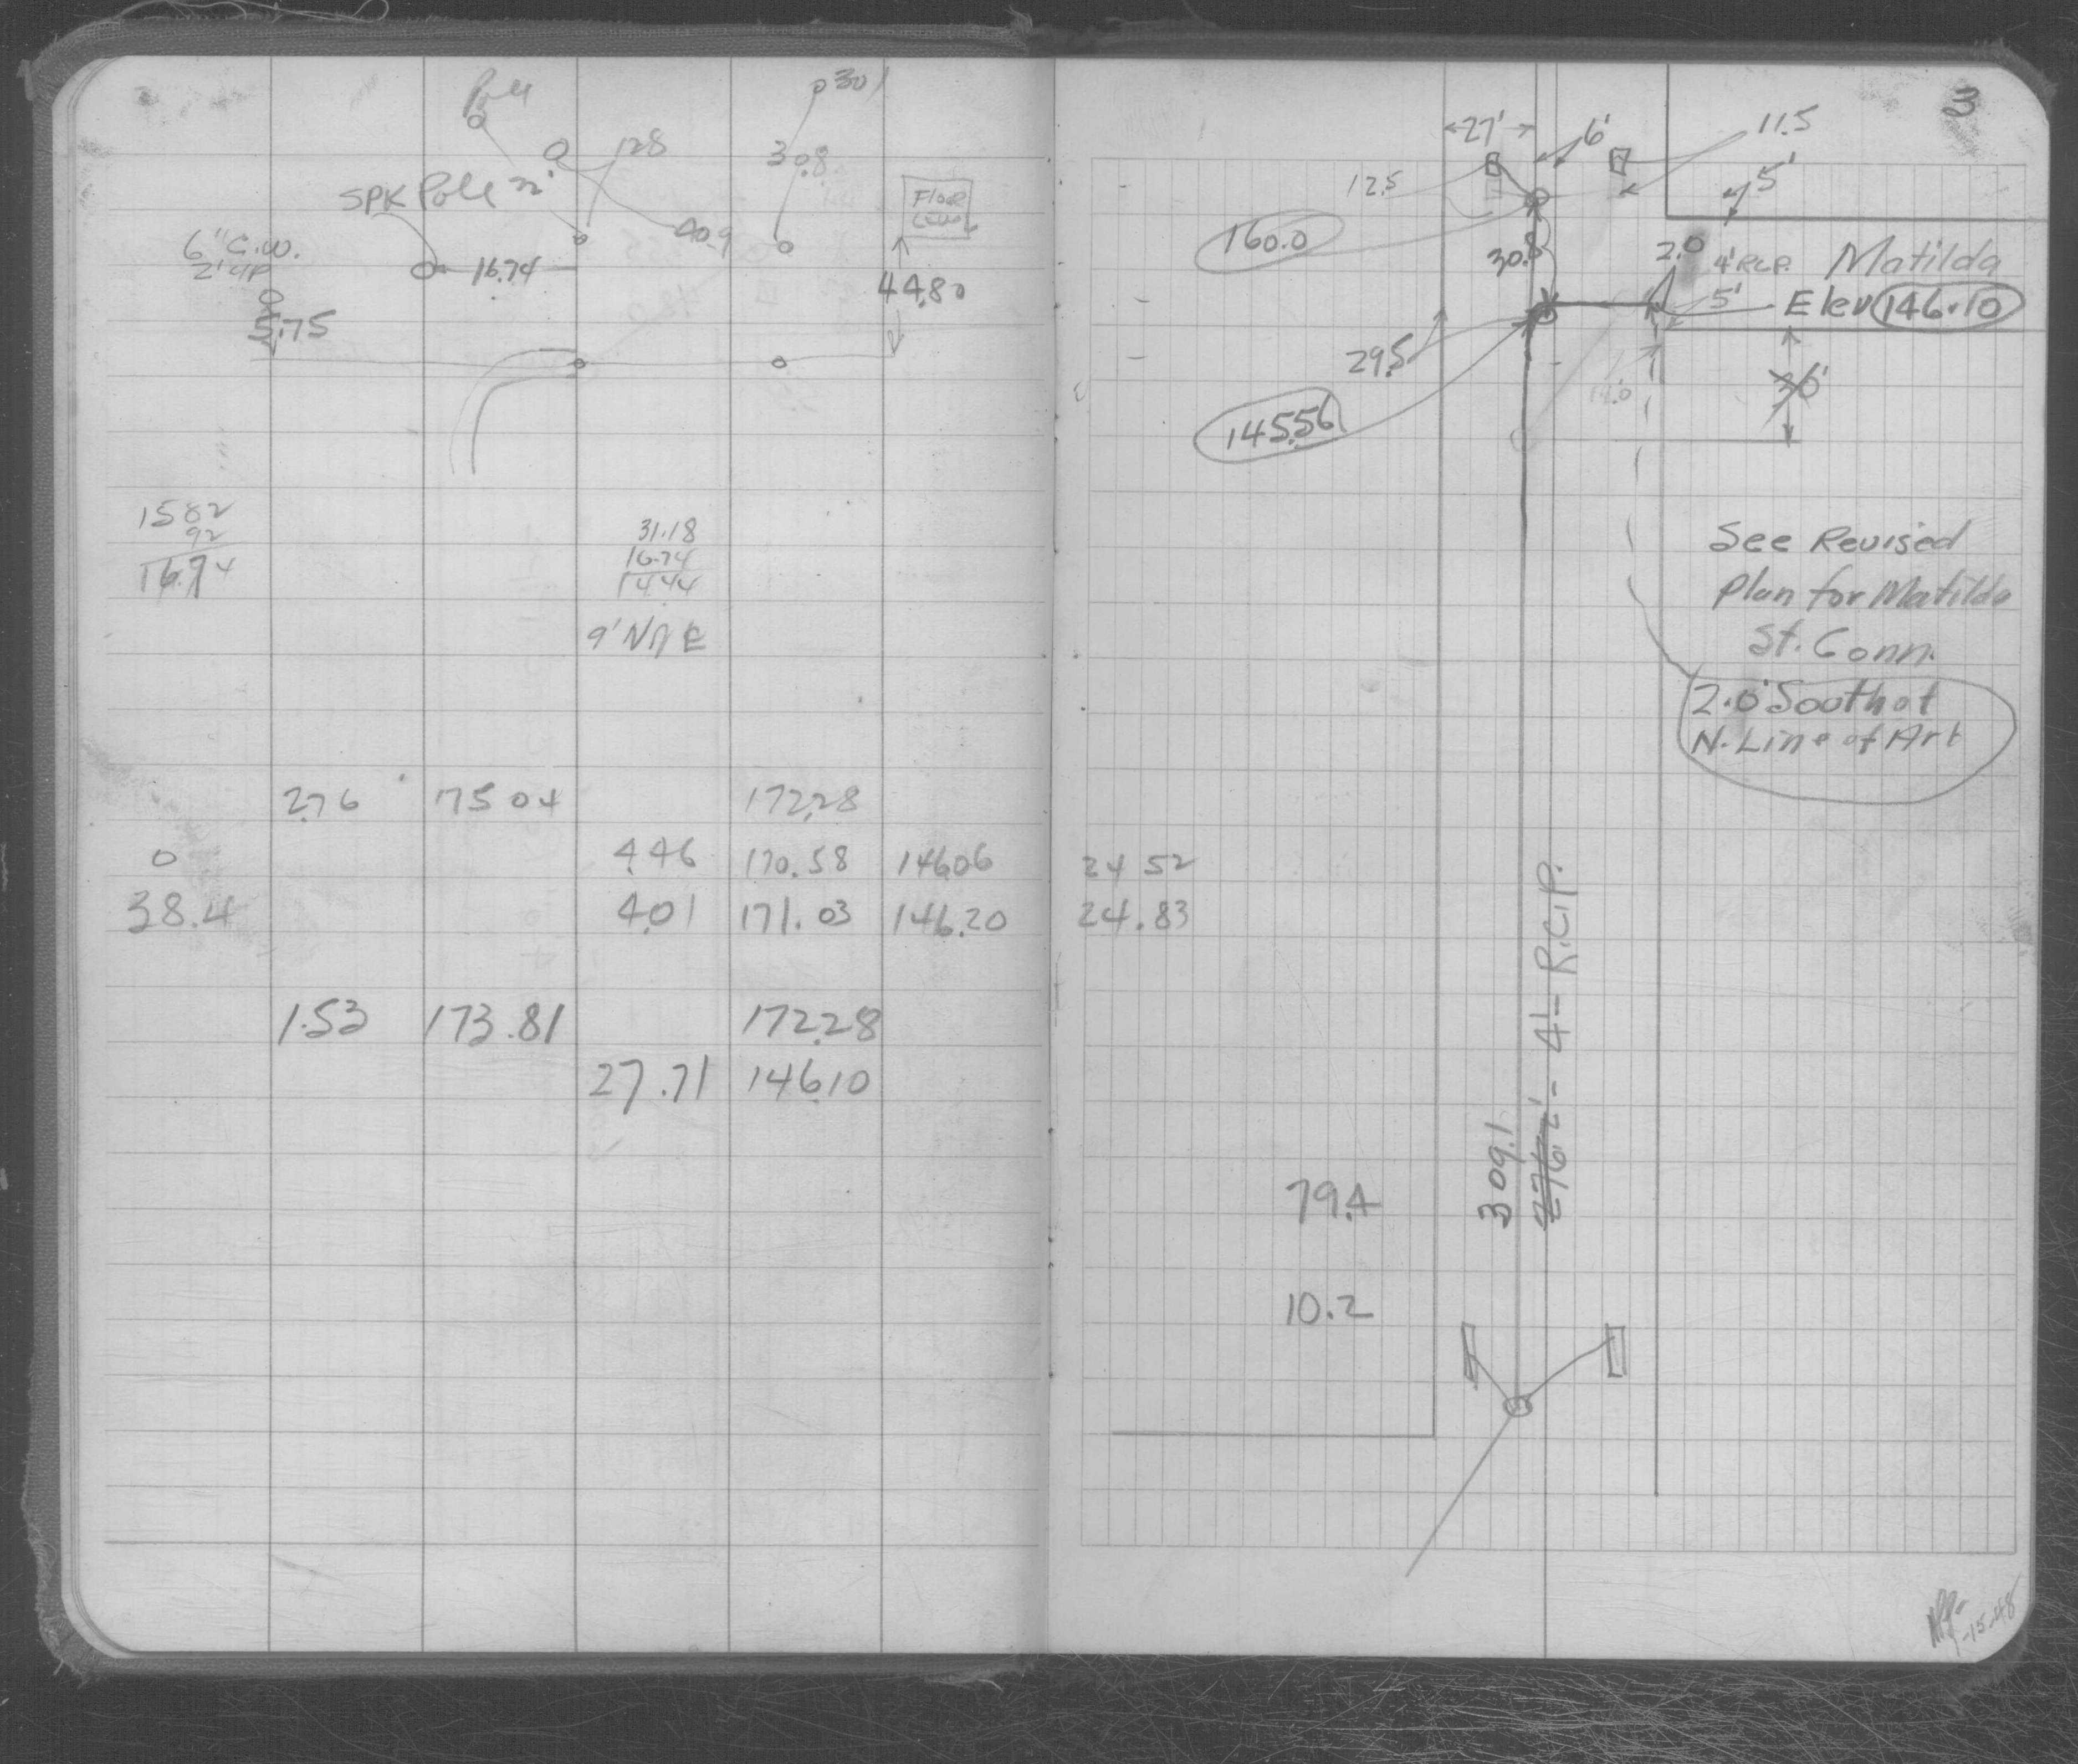 Pole
301
128
30.8
SPK Pole 22'
40.9
Floor
6" C.W.
2' up
16.74
44.80
5.75
1582
92
16.74
31.18
16.74
14.44
2.76 175.04 172.28
0 4.46 170.58 146.06 24.52
38.4 4.01 171.03 146.20 24.83
1.53 173.81 172.28
27.71 146.10
3
27'
6'
11.5
12.5
5'
160.0
30.8
2.0
4' R.C.P.
Matilda
5'
Elev 146.10
29.5
11.0
36'
145.56
See Revised
Plan for Matilda
St. Conn.
2.0' South of
N. Line of Art
309.1
276.2' - 4' - R.C.P.
79.4
10.2